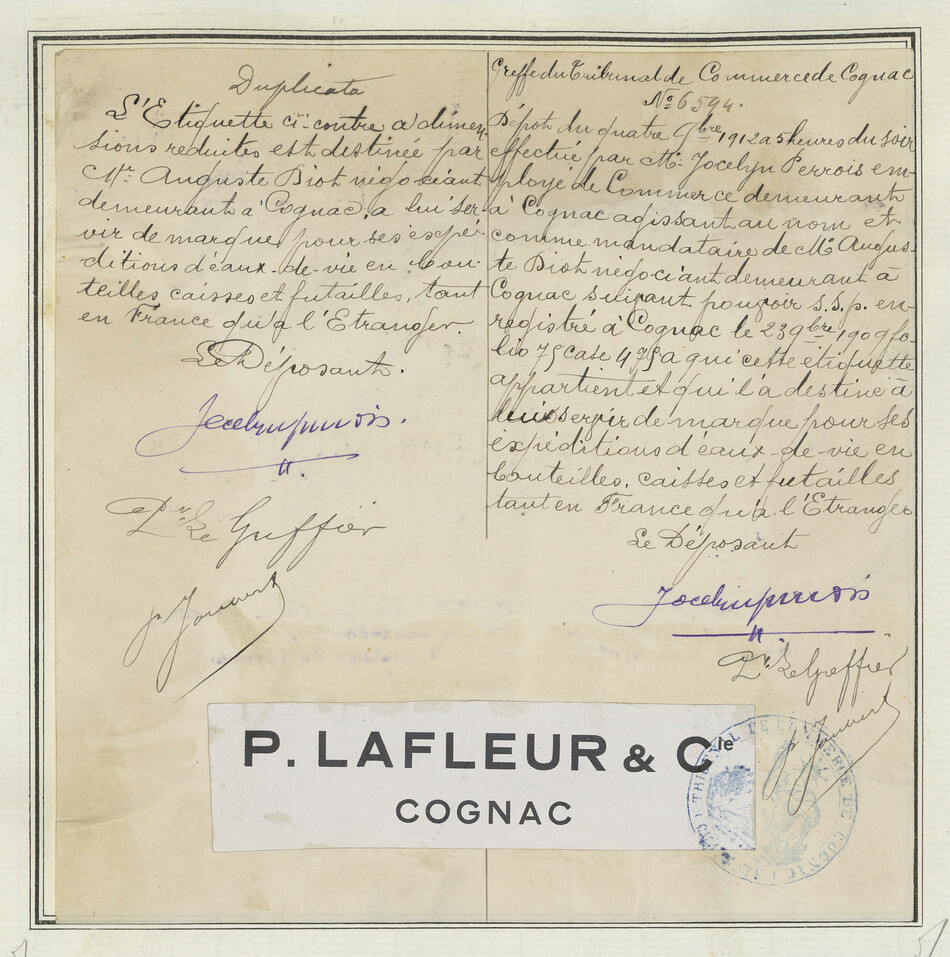 Duplicata
L'Etiquette ci-contre a dimen-
sions reduites est destinée par
Mr. Auguste Biot négociant
demeurant à Cognac, a lui ser-
vir de marque pour ses expé-
ditions d'eaux-de-vie en bou-
teilles caisses et futailles, tant
en France qu'a l'Etranger.
Le Déposant.
Pr Le Greffier
Greffe du Tribunal de Commerce de Cognac
No 6594.
Dépot du quatre 9bre 1912 a 5 heures du soir
effectué par Mr. Jocelyn Perrois em-
ployé de Commerce demeurant
à Cognac agissant au nom et
comme mandataire de Mr Augus-
te Biot négociant demeurant à
Cognac suivant pouvoir s.s.p. en-
registré à Cognac le 23 9bre 1909 fo-
lio 75 case 475 a qui cette étiquette
appartient et qui l'a destiné à
lui servir de marque pour ses
expéditions d'eaux-de-vie en
bouteilles, caisses et futailles
tant en France qu'a l'Etranger
Le Déposant
Pr Le Greffier
P. LAFLEUR & Cie
COGNAC
TRIBUNAL DE COMMERCE DE COGNAC